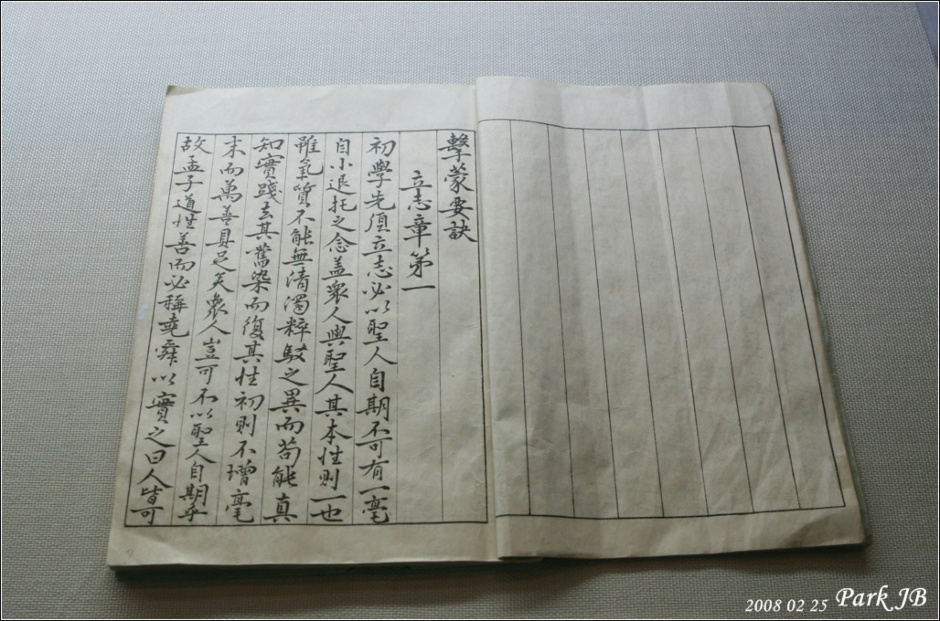 擊蒙要訣
立志章第一
初學先須立志必以聖人自期不可有一毫
自小退托之念盖衆人與聖人其本性則一也
雖氣質不能無清濁粹駁之異而苟能真
知實踐去其舊染而復其性初則不增毫
末而萬善具足矣衆人豈可不以聖人自期乎
故孟子道性善而必稱堯舜以實之曰人皆可
2008 02 25 Park JB